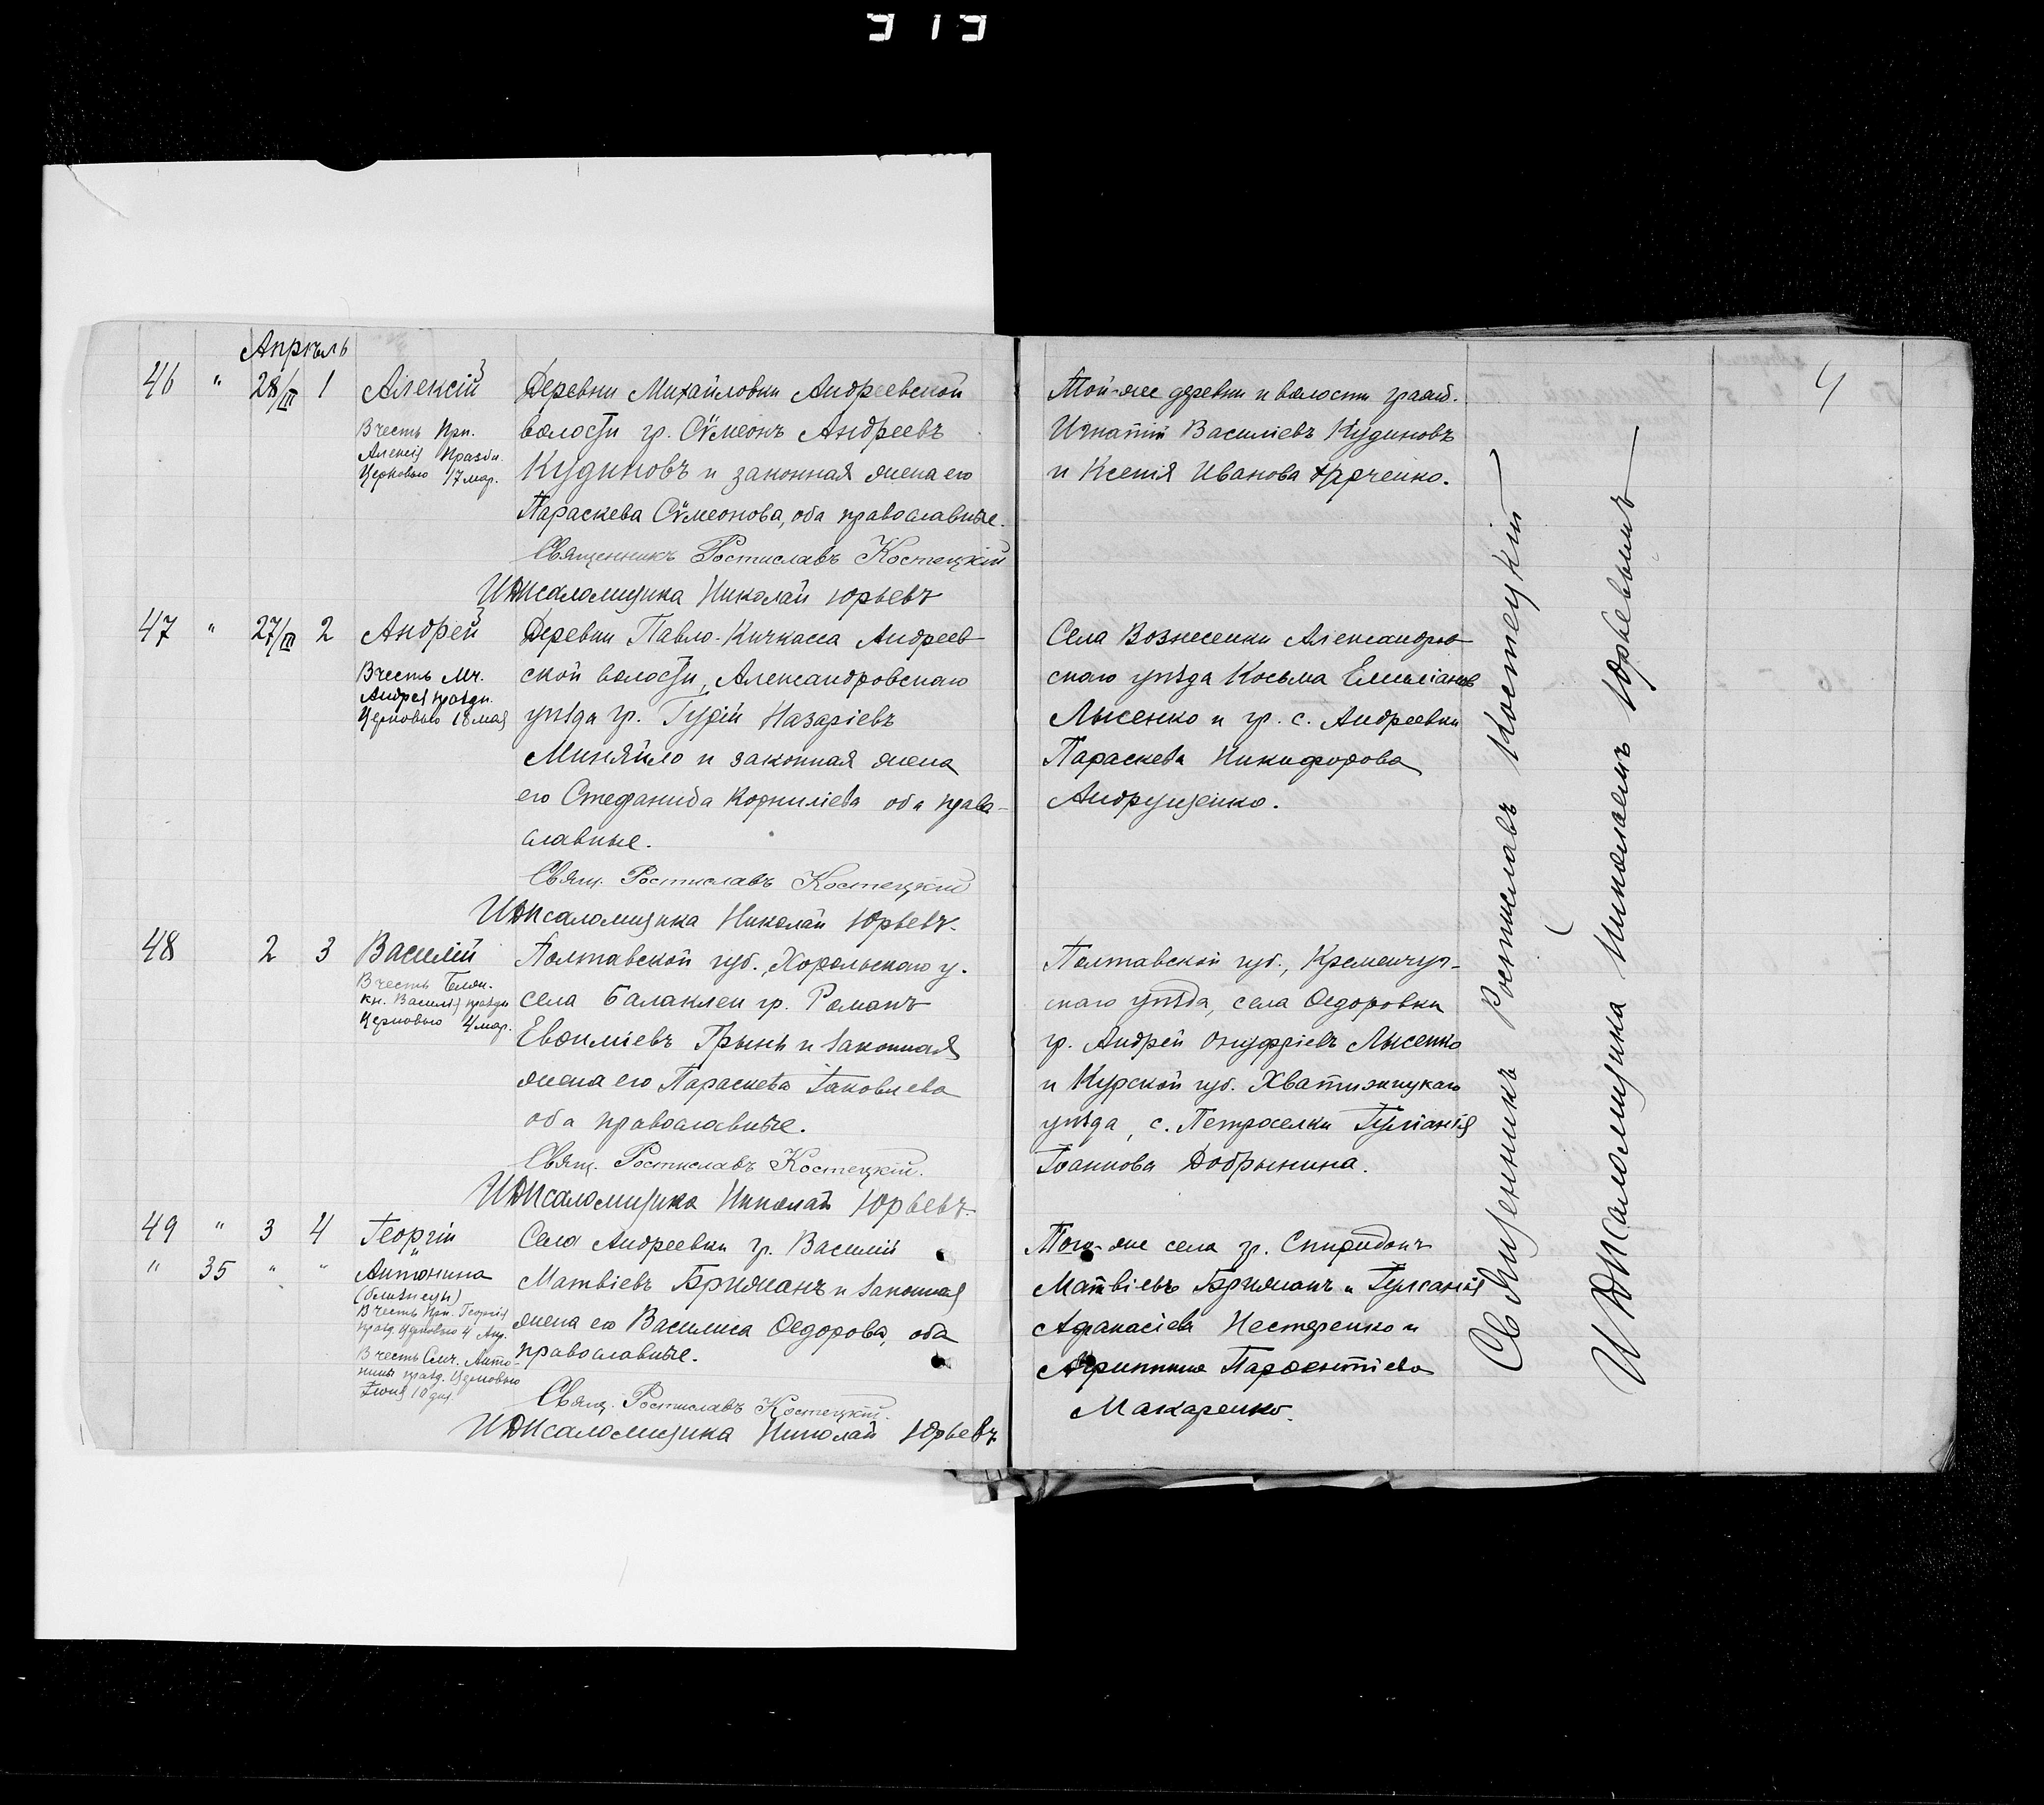 313
Апрѣль
46 " 28/III 1 Алексій
Въ честь Прп.
Алексія праздн.
Церковью 17 мар.
Деревни Михайловки Андреевской
волости гр. Сѵмеонъ Андреевъ
Кудиновъ и законная жена его
Параскева Сѵмеонова, оба православные.
Священникъ Ростиславъ Костецкій
И.д. псаломщика Николай Юрьевъ
Той-же деревни и волости гражд.
Игнатій Василіевъ Кудиновъ
и Ксенія Иванова
47 " 27/III 2 Андрей
Въ честь Мч.
Андрея праздн.
Церковью 18 мая
Деревни Павло-Кичкасса Андреев-
ской волости, Александровскаго
уѣзда гр. Гурій Назаріевъ
Миняйло и законная жена
его Стефанида Корниліева оба право-
славные.
Свящ. Ростиславъ Костецкій
И.д. псаломщика Николай Юрьевъ.
Села Вознесенки Александров-
скаго уѣзда Косьма Емиліановъ
Лысенко и гр. с. Андреевки
Параскева Никифорова
Андрущенко.
48 2 3 Василій
Въ честь Благв.
кн. Василія праздн
Церковью 4 мар.
Полтавской губ., Хорольскаго у.
села Балаклеи гр. Романъ
Евѳиміевъ Грынь и законная
жена его Параскева Іаковлева
оба православные.
Свящ. Ростиславъ Костецкій.
И.д. псаломщика Николай Юрьевъ.
Полтавской губ., Кременчуг-
скаго уѣзда, села Ѳедоровки
гр. Андрей Онуфріевъ Лысенко
и Курской губ.
уѣзда, с. Петроселки Іуліанія
Іоаннова Добрынина.
49 " 3 4 Георгій
" 35 " " Антонина
(близнецы)
Въ честь Прп. Георгія
празд. Церковью 4 Апр.
Въ честь Смч. Анто-
нины празд. Церковью
Іюня 10 дня
Села Андреевки гр. Василій
Матвіевъ Брижанъ и законная
жена его Василиса Ѳедорова, оба
православные.
Свящ. Ростиславъ Костецкій.
И.д. псаломщика Николай Юрьевъ
Того-же села гр. Спиридонъ
Матвіевъ Брижанъ и Іуліанія
Афанасіева Нестеренко и
Агриппина Парѳентіева
Макаренко.
Священникъ Ростиславъ Костецкій
И.д. псаломщика Николаемъ Юрьевымъ
4